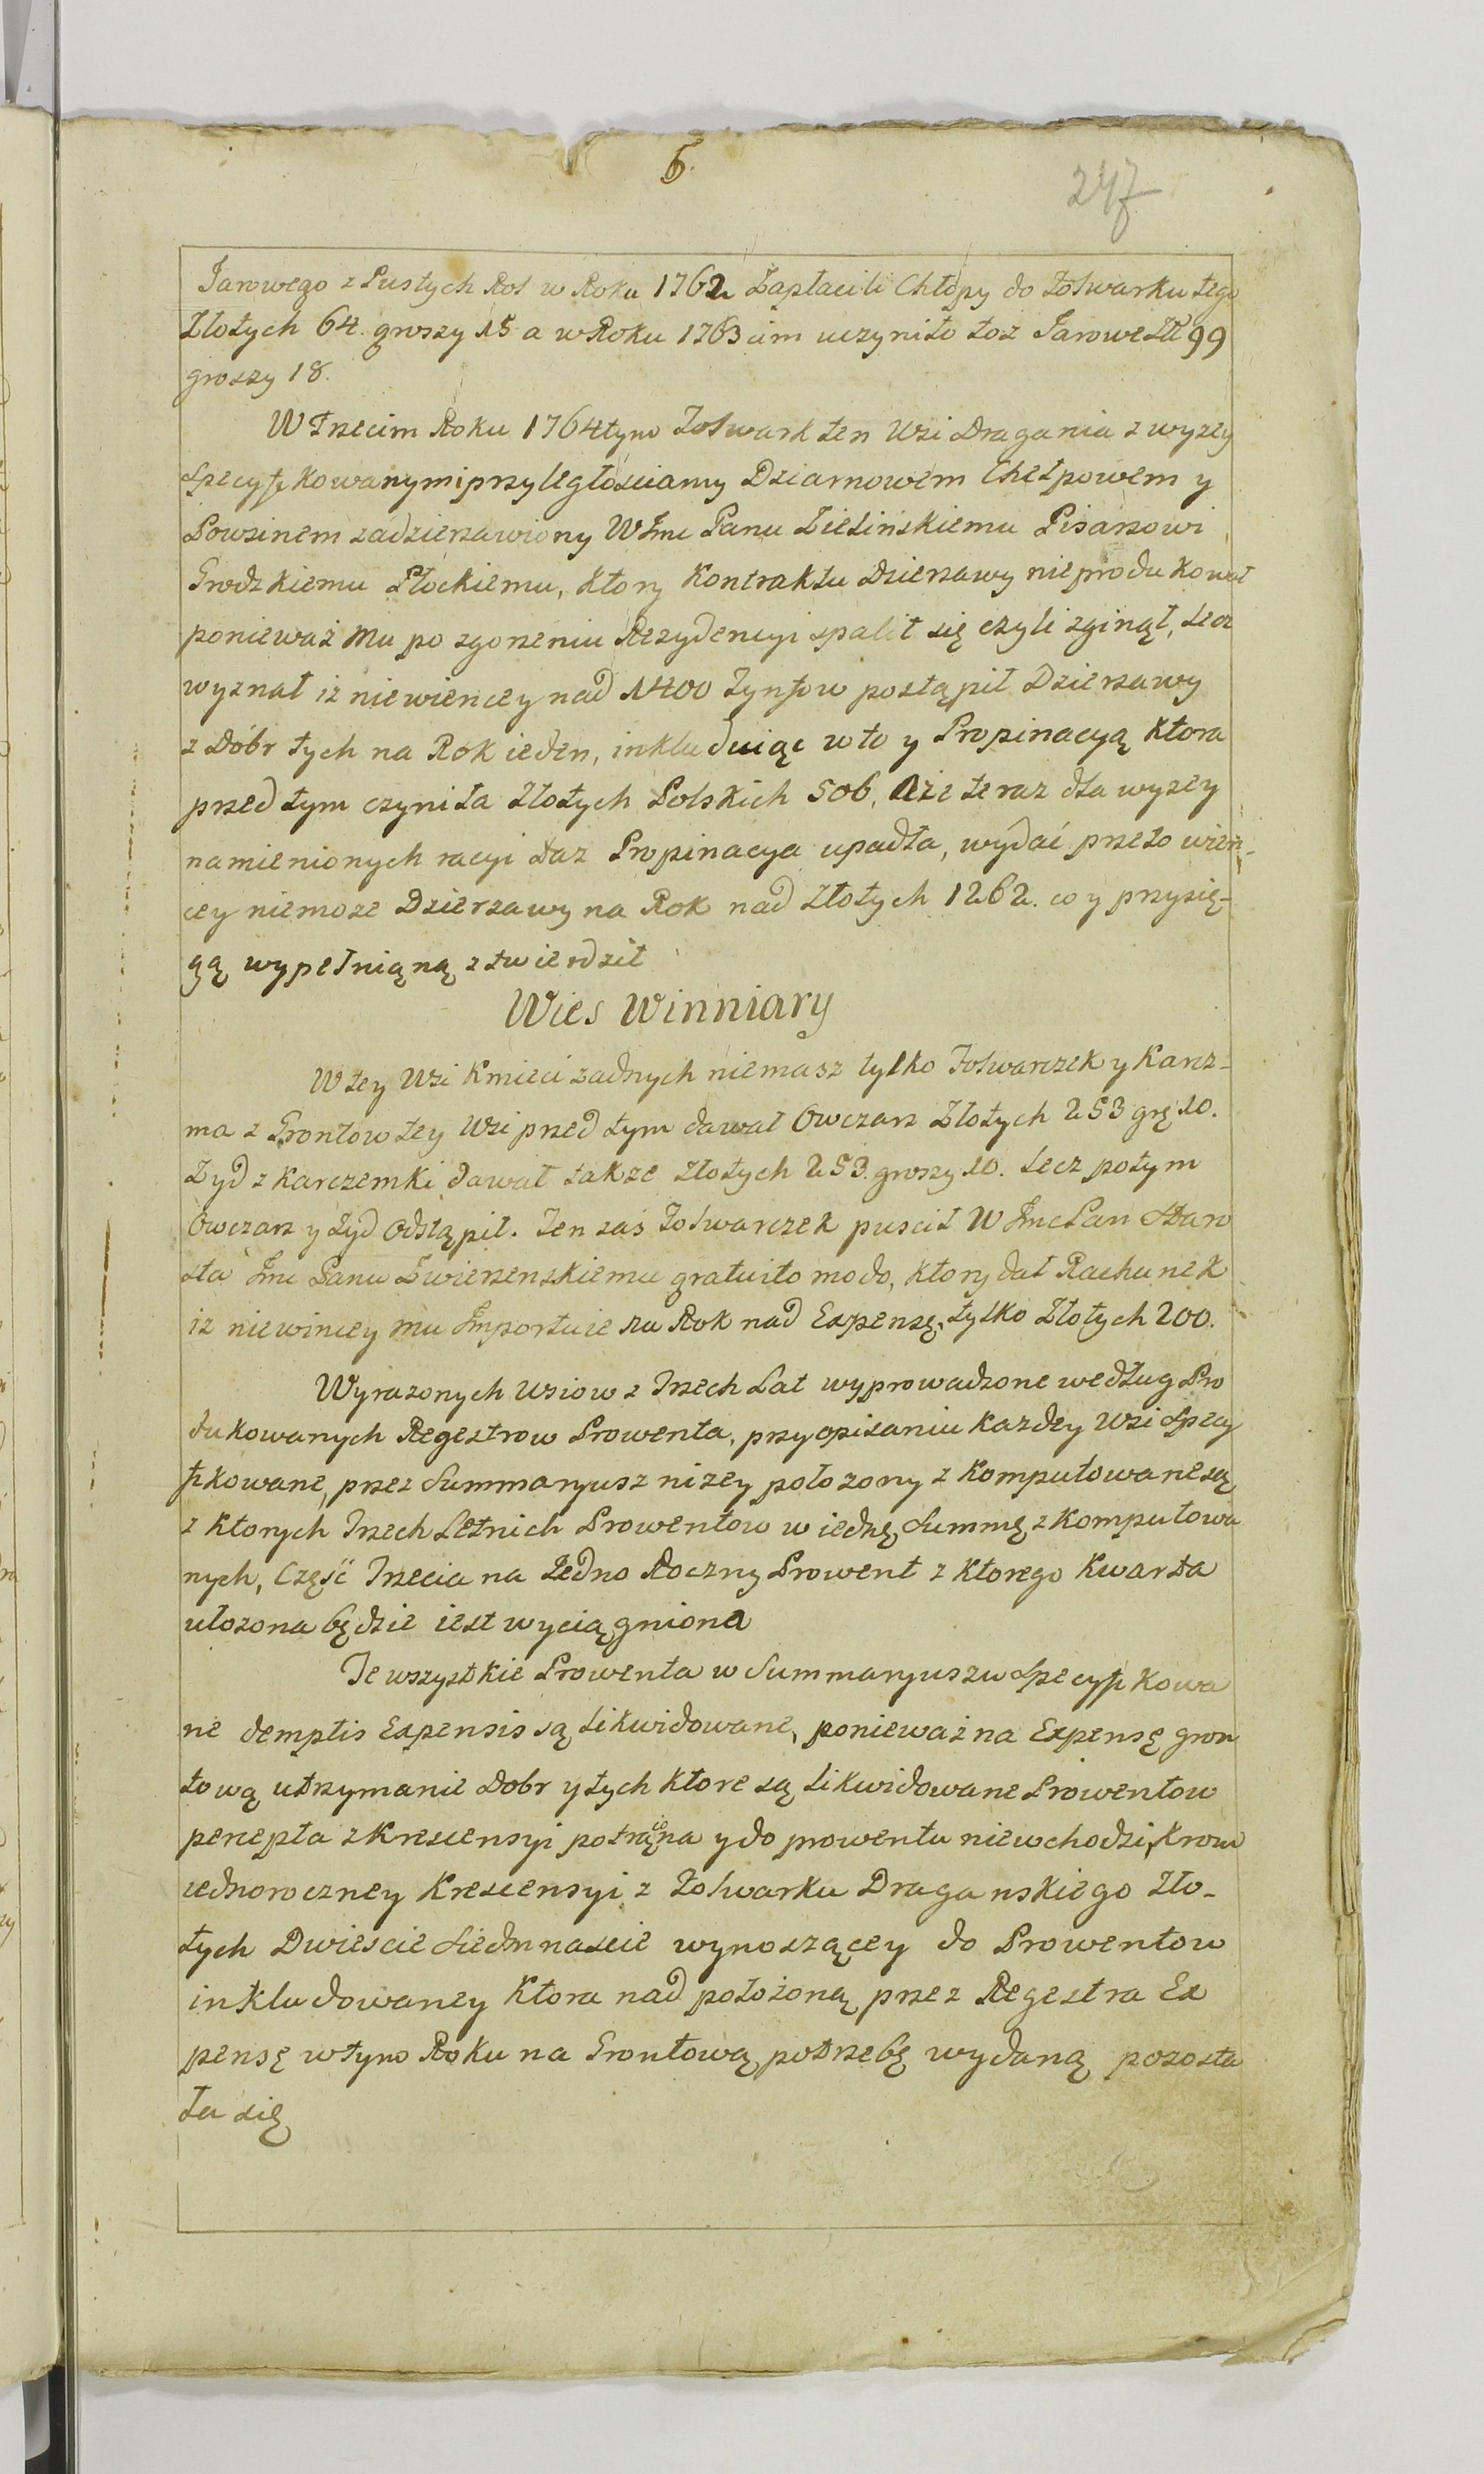 5.
247
Jarowego z Pustych Rol w Roku 1762 Zapłacili Chłopy do Folwarku tego
Złotych 64. groszy 15 a w Roku 1763cim uczyniło toz Jarowe Zł 99
groszy 18.
W Trzecim Roku 1764tym Folwark ten Wsi Dragania z wyzey
specyfikowanymi przyległosciamy Dziarnowem Chełpowem y
Powsinem zadzierzawiony WJmc Panu Zielińskiemu Pisarzowi
Grodzkiemu Płockiemu, ktory Kontraktu Dzierzawy nieprodukował
ponieważ mu po zgorzeniu Rezydencyi spalił się czyli zginął, lecz
wyznał iz niewiencey nad 1400 Tynfow postąpił Dzierzawy
z Dóbr tych na Rok ieden, inkluduiąc w to y Propinacyą ktora
przed tym czyniła Złotych Polskich 506, Aże teraz dla wyzey
namienionych racyi taz Propinacya upadła, wydać przeto wien-
cey niemoze Dzierzawy na Rok nad Złotych 1262. co y przysię-
gą wypełnianą ztwierdził
Wies Winniary
W tey Wsi Kmieci zadnych niemasz tylko Folwarczek y Karcz-
ma z Grontow tey Wsi przed tym dawał Owczarz Złotych 253 grę 10.
Zyd z Karczemki dawał takze Złotych 253. groszy 10. lecz potym
Owczarz y Zyd Odstąpił. Ten zaś Folwarczek puscił W JmcPan Staro
sta Jmc Panu Zwierzenskiemu gratuito modo, ktory dał Rachunek
iz niewincey mu Importuie na Rok nad Expensę, tylko Złotych 200.
Wyrazonych Wsiow z Trzech Lat wyprowadzone według Pro
dukowanych Regestrow Prowenta, przy opisaniu kazdey Wsi specy
fikowane, przez Summaryusz nizey położony z komputowane są
z ktorych Trzech Letnich Prowentow w iednę Summę z komputowa
nych, Część Trzecia na Jedno Roczny Prowent z ktorego Kwarta
ułozona będzie iest wyciągniona
Te wszystkie Prowenta w Summaryuszu specyfikowa
ne demptis Expensis są likwidowane, ponieważ na Expensę gron
tową utrzymanie Dobr y tych ktore są likwidowane Prowentow
percepta z Krescensyi potrącona y do prowentu niewchodzi, krom
iednoroczney Krescensyi z Folwarku Draganskiego Zło-
tych Dwiescie siedmnascie wynoszącey do Prowentow
inkludowaney ktora nad położoną przez Regestra Ex
pensę w tym Roku na Grontową potrzebę wydaną pozosta
ła się